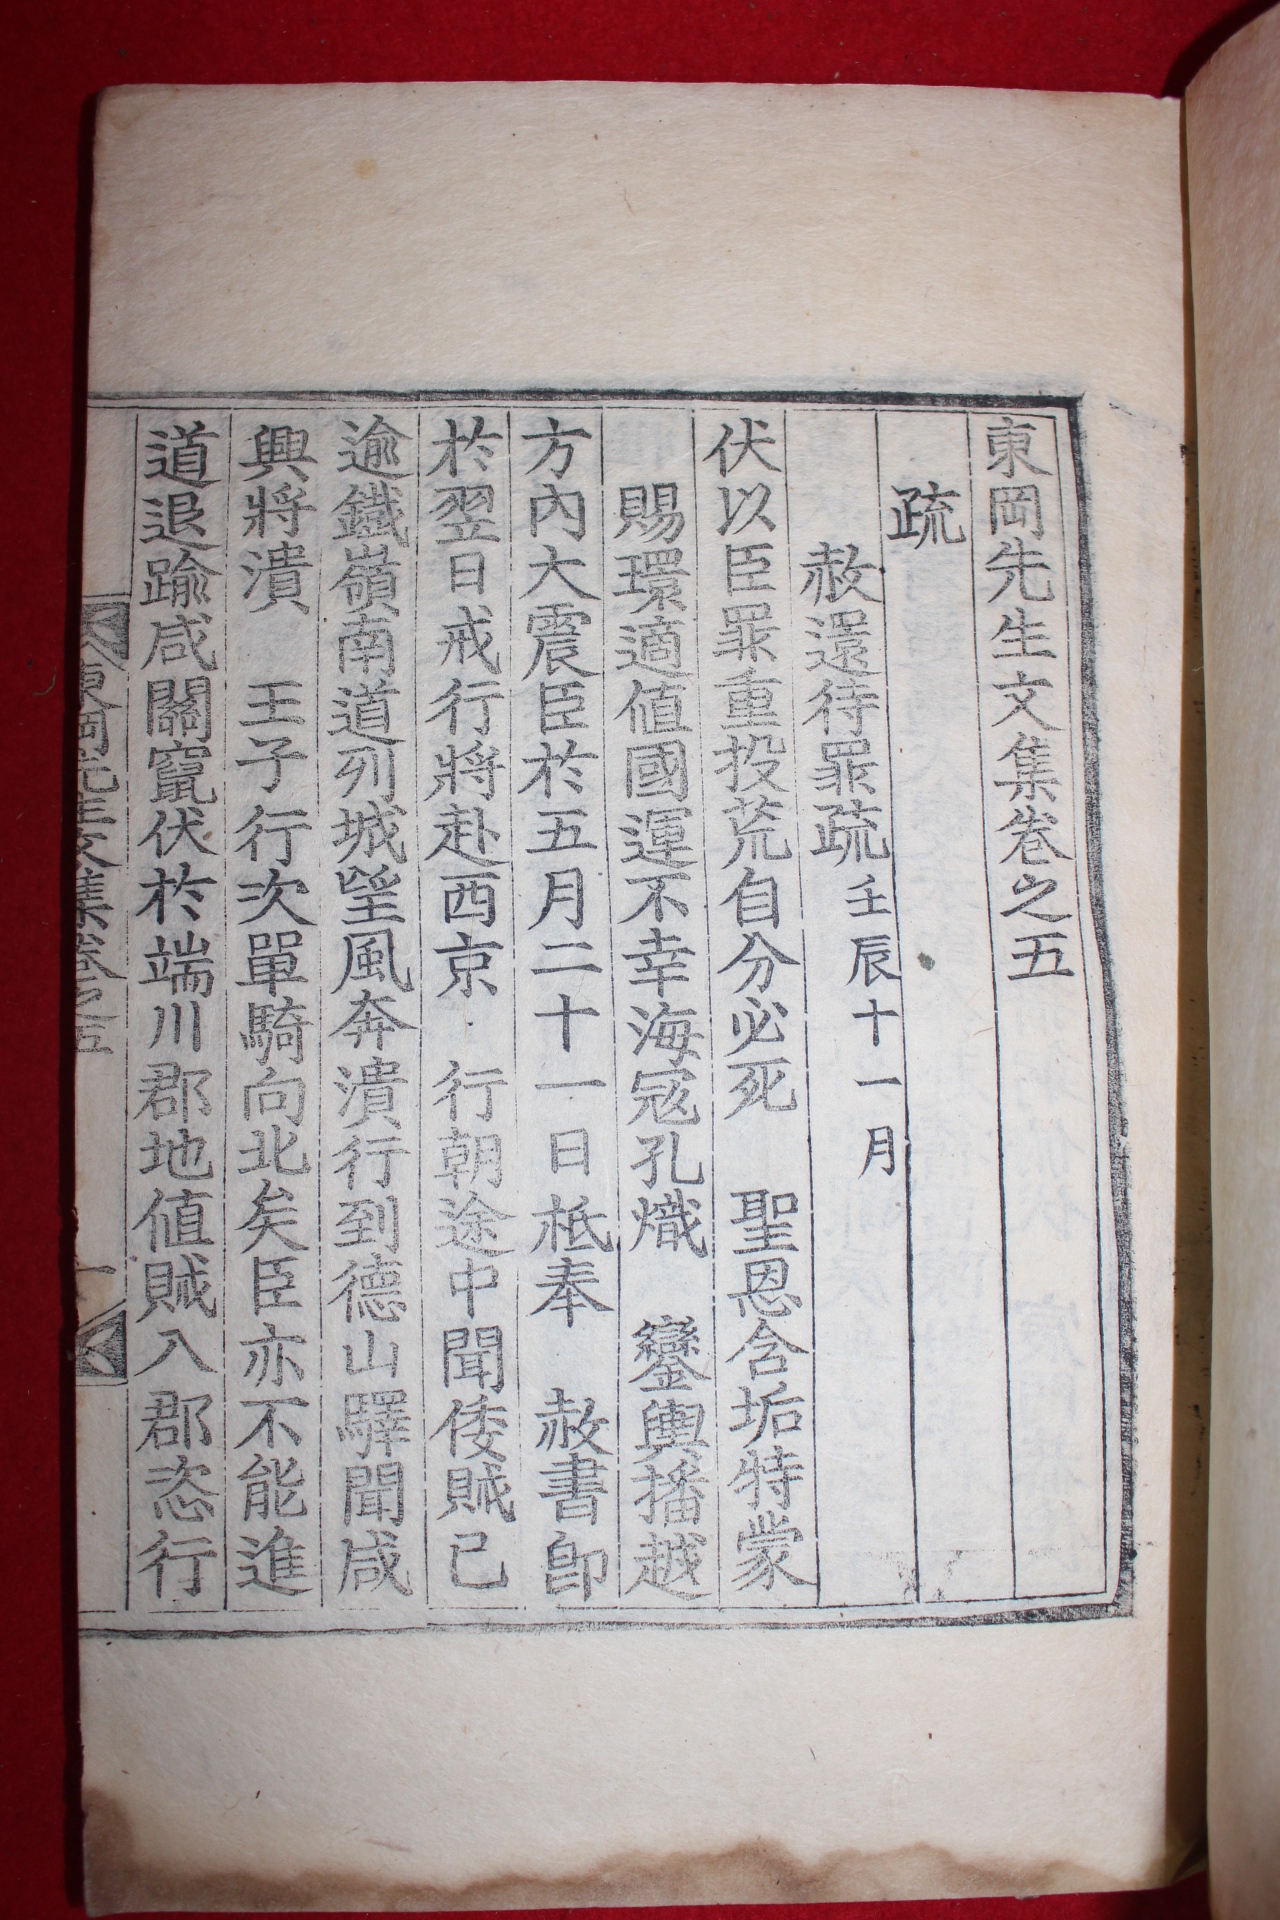 東岡先生文集卷之五
疏
赦還待罪疏 壬辰十一月
伏以臣罪重投荒自分必死 聖恩含垢特蒙
賜環適値國運不幸海寇孔熾 鑾輿播越
方內大震臣於五月二十一日柢奉 赦書卽
於翌日戒行將赴西京 行朝途中聞倭賊已
逾鐵嶺南道列城望風奔潰行到德山驛聞咸
興將潰 王子行次單騎向北矣臣亦不能進
道退踰咸關竄伏於端川郡地値賊入郡恣行
東岡先生文集卷之五 一